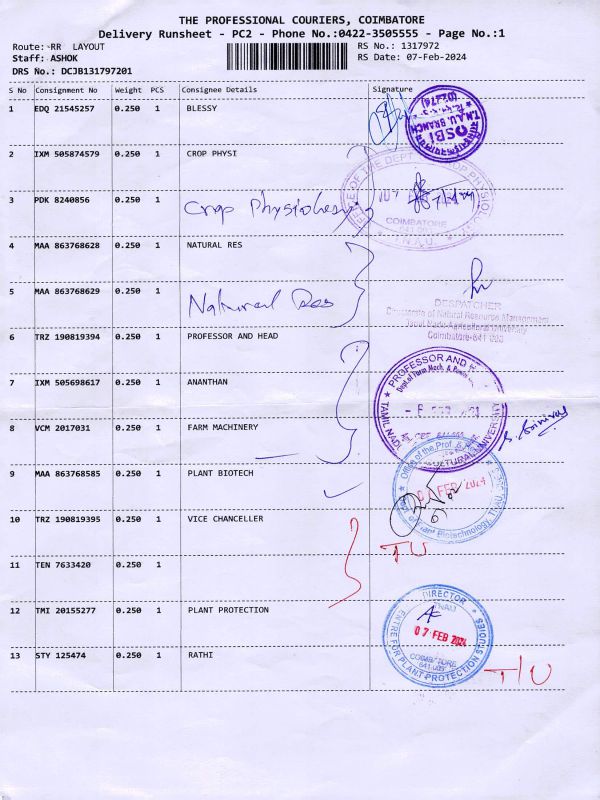 THE PROFESSIONAL COURIERS, COIMBATORE
Delivery Runsheet - PC2 - Phone No.:0422-3505555 - Page No.:1
Route: RR LAYOUT
RS No.: 1317972
Staff: ASHOK
RS Date: 07-Feb-2024
DRS No.: DCJB131797201
S No Consignment No Weight PCS Consignee Details Signature
1 EDQ 21545257 0.250 1 BLESSY
OSBI
T.N.A.U. BRANCH
2 IXM 505874579 0.250 1 CROP PHYSI
3 PDK 8240856 0.250 1 Crop Physiology
COIMBATORE
T.N.A.U.
4 MAA 863768628 0.250 1 NATURAL RES
5 MAA 863768629 0.250 1 Natural Res
DESPATCHER
Directorate of Natural Resource Management
Tamil Nadu Agricultural University
Coimbatore-641 003
6 TRZ 190819394 0.250 1 PROFESSOR AND HEAD
PROFESSOR AND
Dept. of Farm Mech. & Power
7 IXM 505698617 0.250 1 ANANTHAN
8 VCM 2017031 0.250 1 FARM MACHINERY
9 MAA 863768585 0.250 1 PLANT BIOTECH
Office of the Prof.
Plant Biotechnology, TNAU
10 TRZ 190819395 0.250 1 VICE CHANCELLER
TU
11 TEN 7633420 0.250 1
12 TMI 20155277 0.250 1 PLANT PROTECTION
DIRECTOR
TNAU
07 FEB 2024
COIMBATORE
CENTRE FOR PLANT PROTECTION STUDIES
13 STY 125474 0.250 1 RATHI
T/U